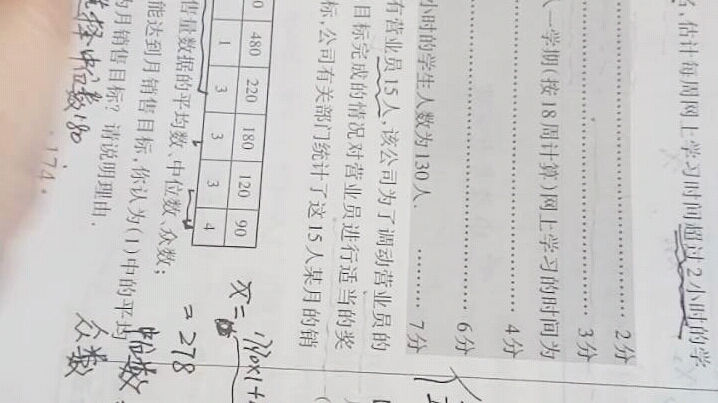 ，估计每周网上学习时间超过2小时的学
2分
3分
（一学期(按18周计算)网上学习的时间为
4分
6分
小时的学生人数为130人. 7分
有营业员15人,该公司为了调动营业员的
目标完成的情况对营业员进行适当的奖
标,公司有关部门统计了这15人某月的销
0 480 220 180 120 90
1 3 3 3 4
售量数据的平均数、中位数、众数;
能达到月销售目标,你认为(1)中的平均
的月销售目标?请说明理由.
x=
1770×1+
=278
中位数
众数
选择中位数180
174.